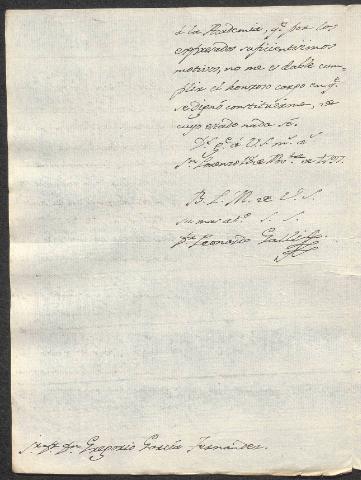 á la Academia, qe. por los
expresados suficientisimos
motivos, no me es dable cum-
plir el honroso cargo en qe.
se dignó constituirme, y de
cuyo estado nada sé.
Ds. ge. á V. S. ms. as.
Sn. Lorenzo de Nobre. de
B. L. M. de V. S.
su mas ato. S. S.
Leonardo Galli
Sor. Dn. Gregorio García Fernandez.